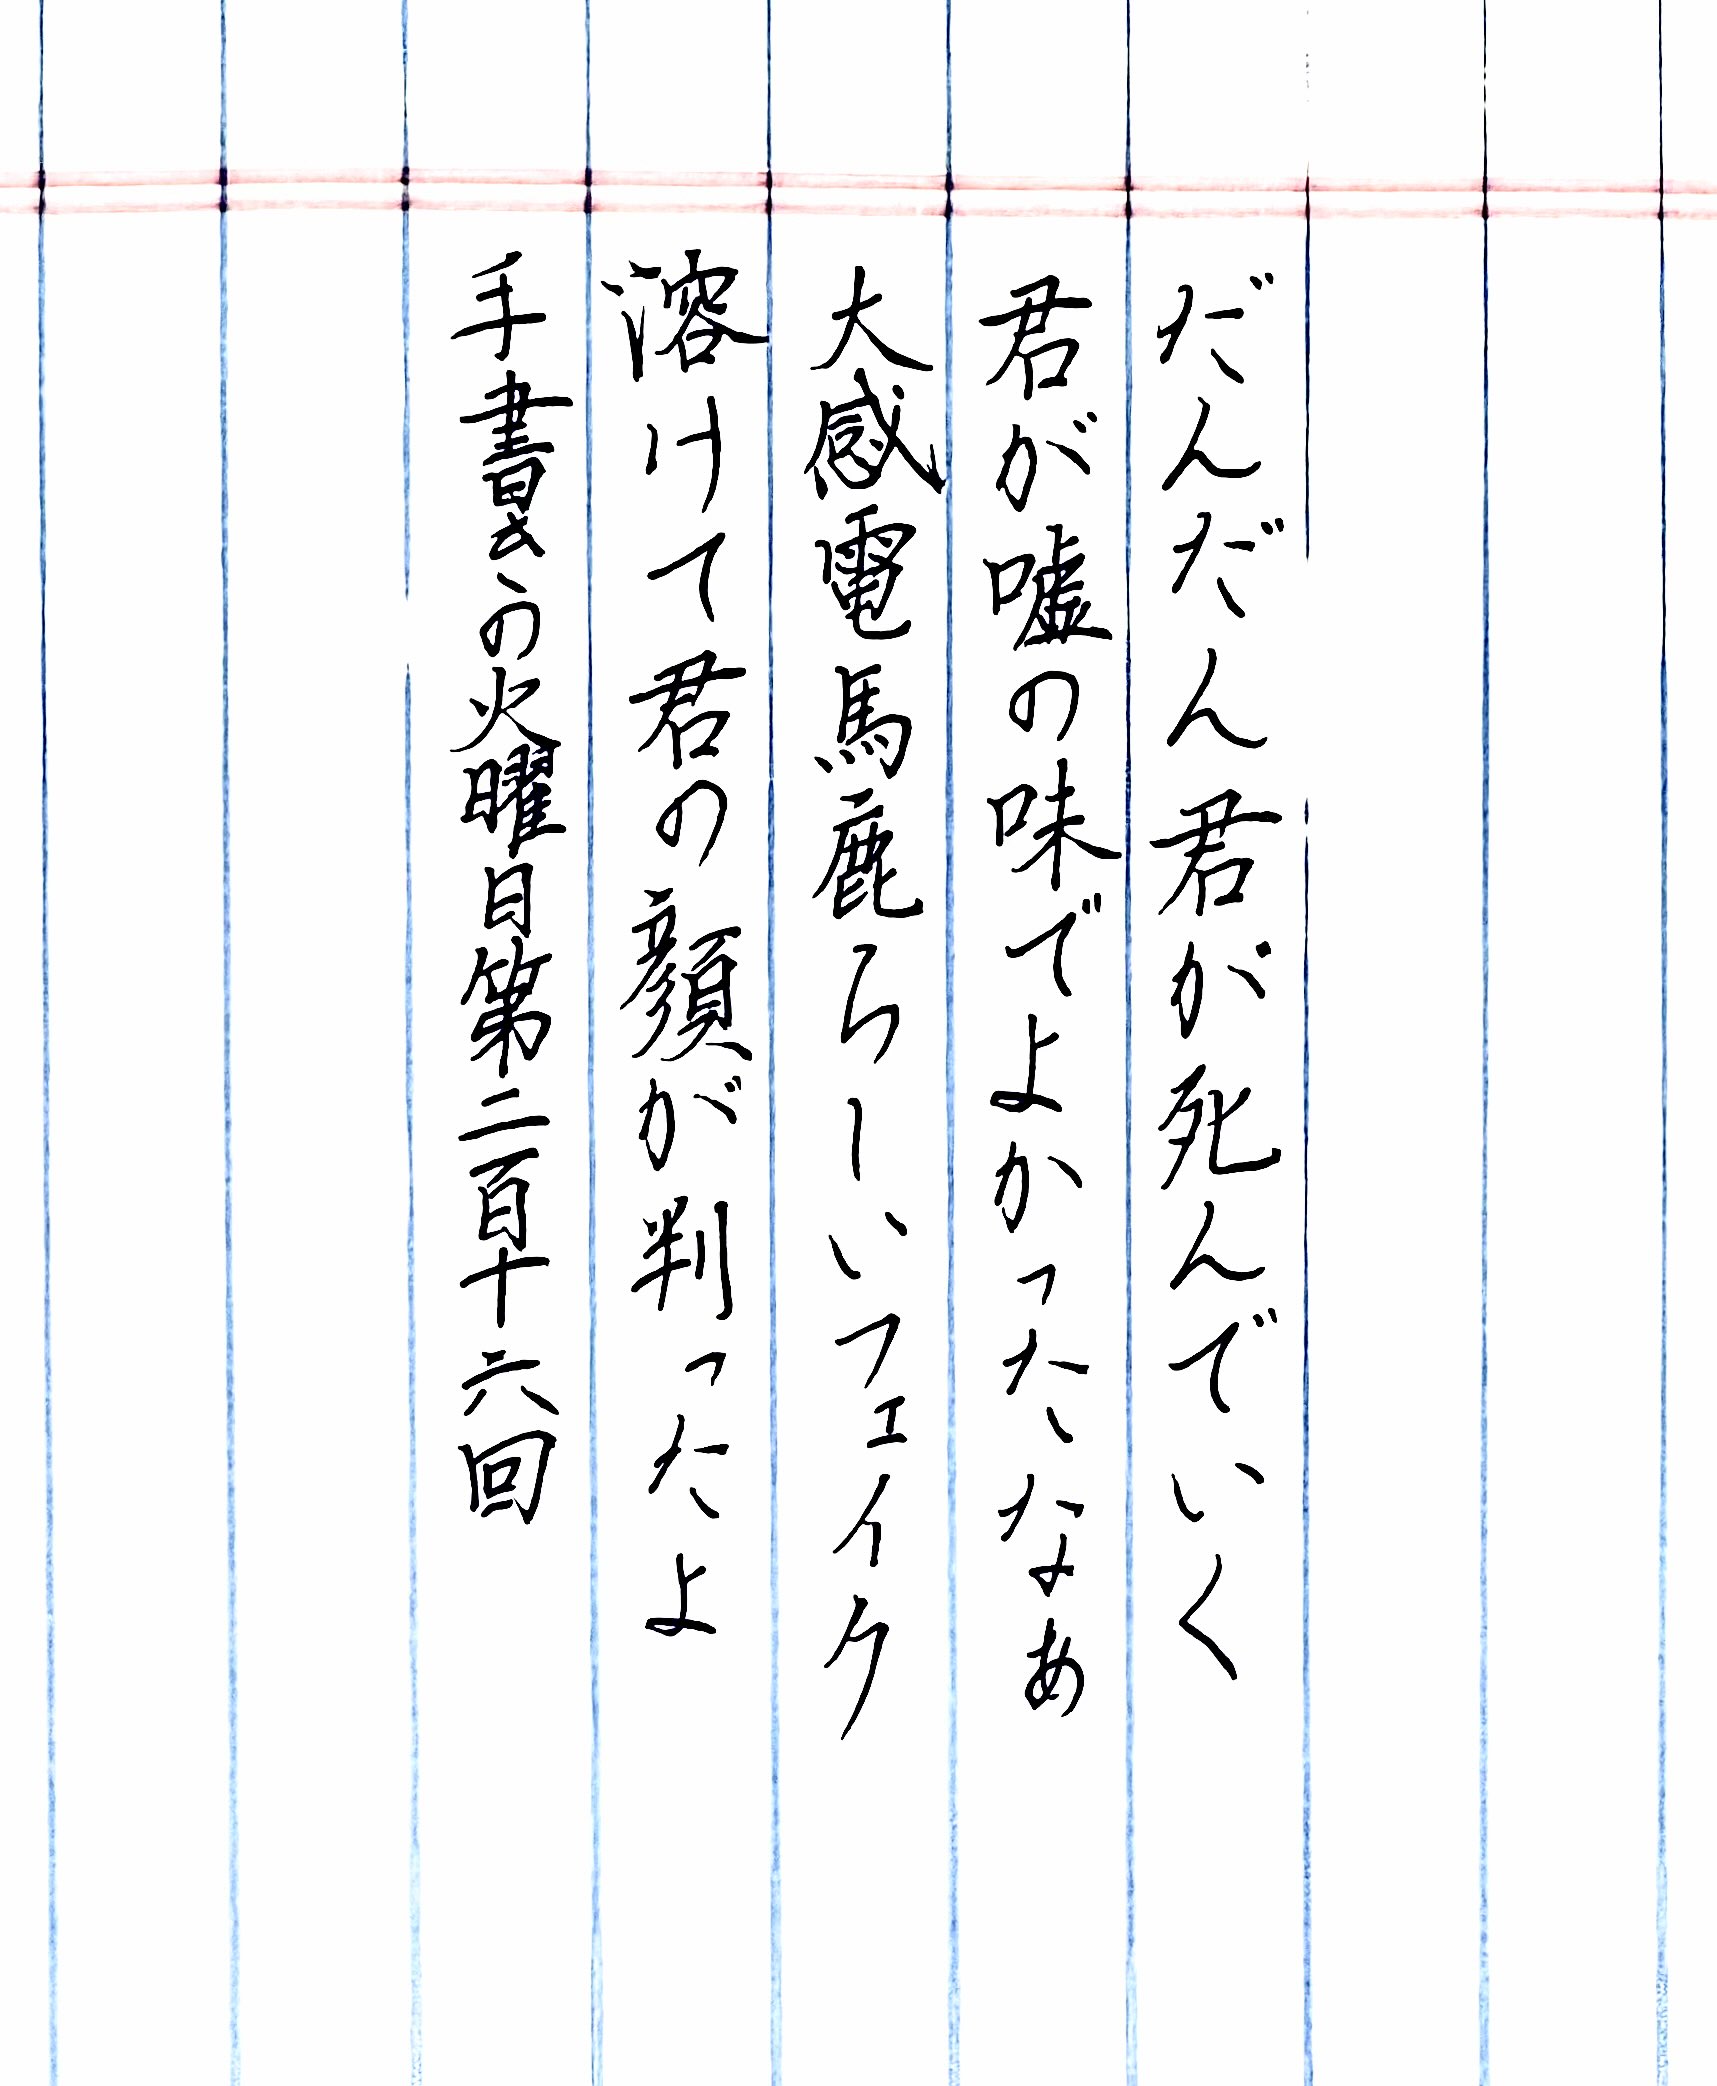 だんだん君が死んでいく
君が嘘の味でよかったなぁ
大感電馬鹿らーいフェイク
溶けて君の顔が判ったよ
手書きの火曜日第二百十六回